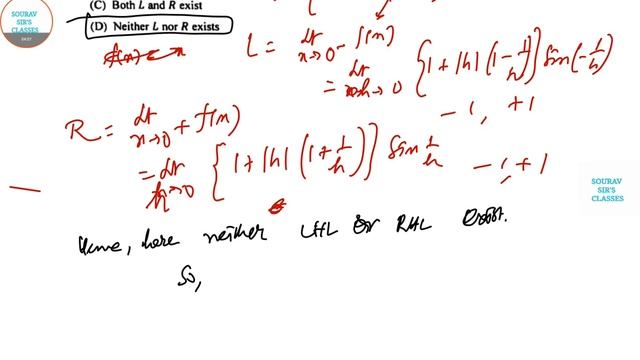 SOURAV
SIR'S
CLASSES
(C) Both L and R exist
(D) Neither L nor R exists
L = lt x→0- f(x)
= lt h→0 {1+|h|(1-1/h)} sin(-1/h)
-1, +1
R = lt x→0+ f(x)
= lt h→0 {1+|h|(1+1/h)} sin 1/h
-1, +1
SOURAV
SIR'S
CLASSES
Hence, here neither LHL or RHL exist.
So,